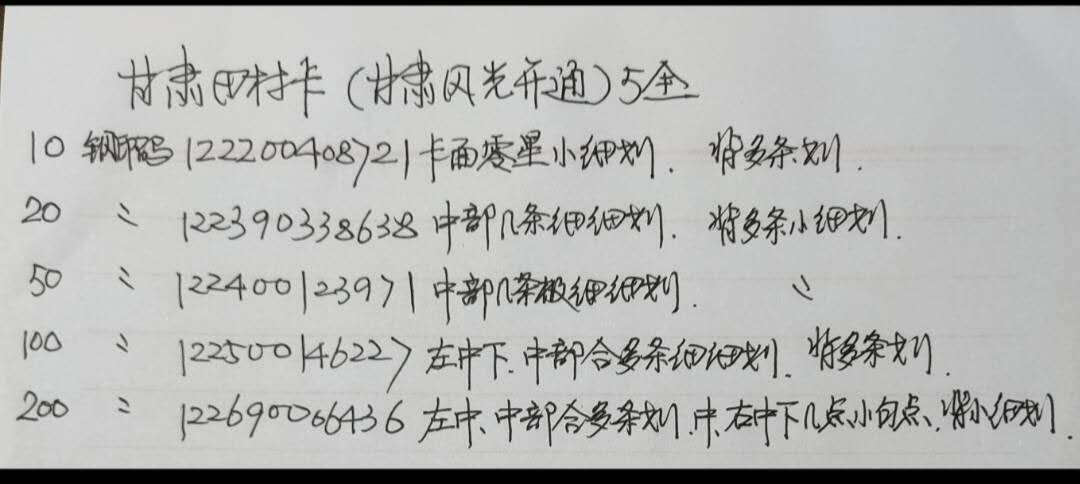 甘肃田村卡（甘肃风光开通）5全
10 钢印码 12220040872１卡面零星小细划. 背多条划.
20 〃 122390338638 中部几条细细划. 背多条小细划.
50 〃 122400123971 中部几条极细细划. 〃
100 〃 122500146227 左中下.中部合多条细细划. 背多条划.
200 〃 122690066436 左中、中部合多条划.中、右中下几点小白点、背小细划.